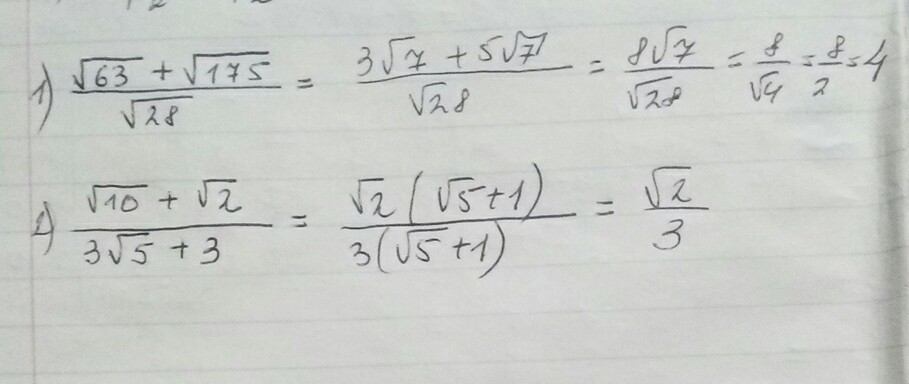 1) (√63 + √175)/√28 = (3√7 + 5√7)/√28 = 8√7/√28 = 8/√4 = 8/2 = 4
2) (√10 + √2)/(3√5 + 3) = √2(√5+1)/3(√5+1) = √2/3